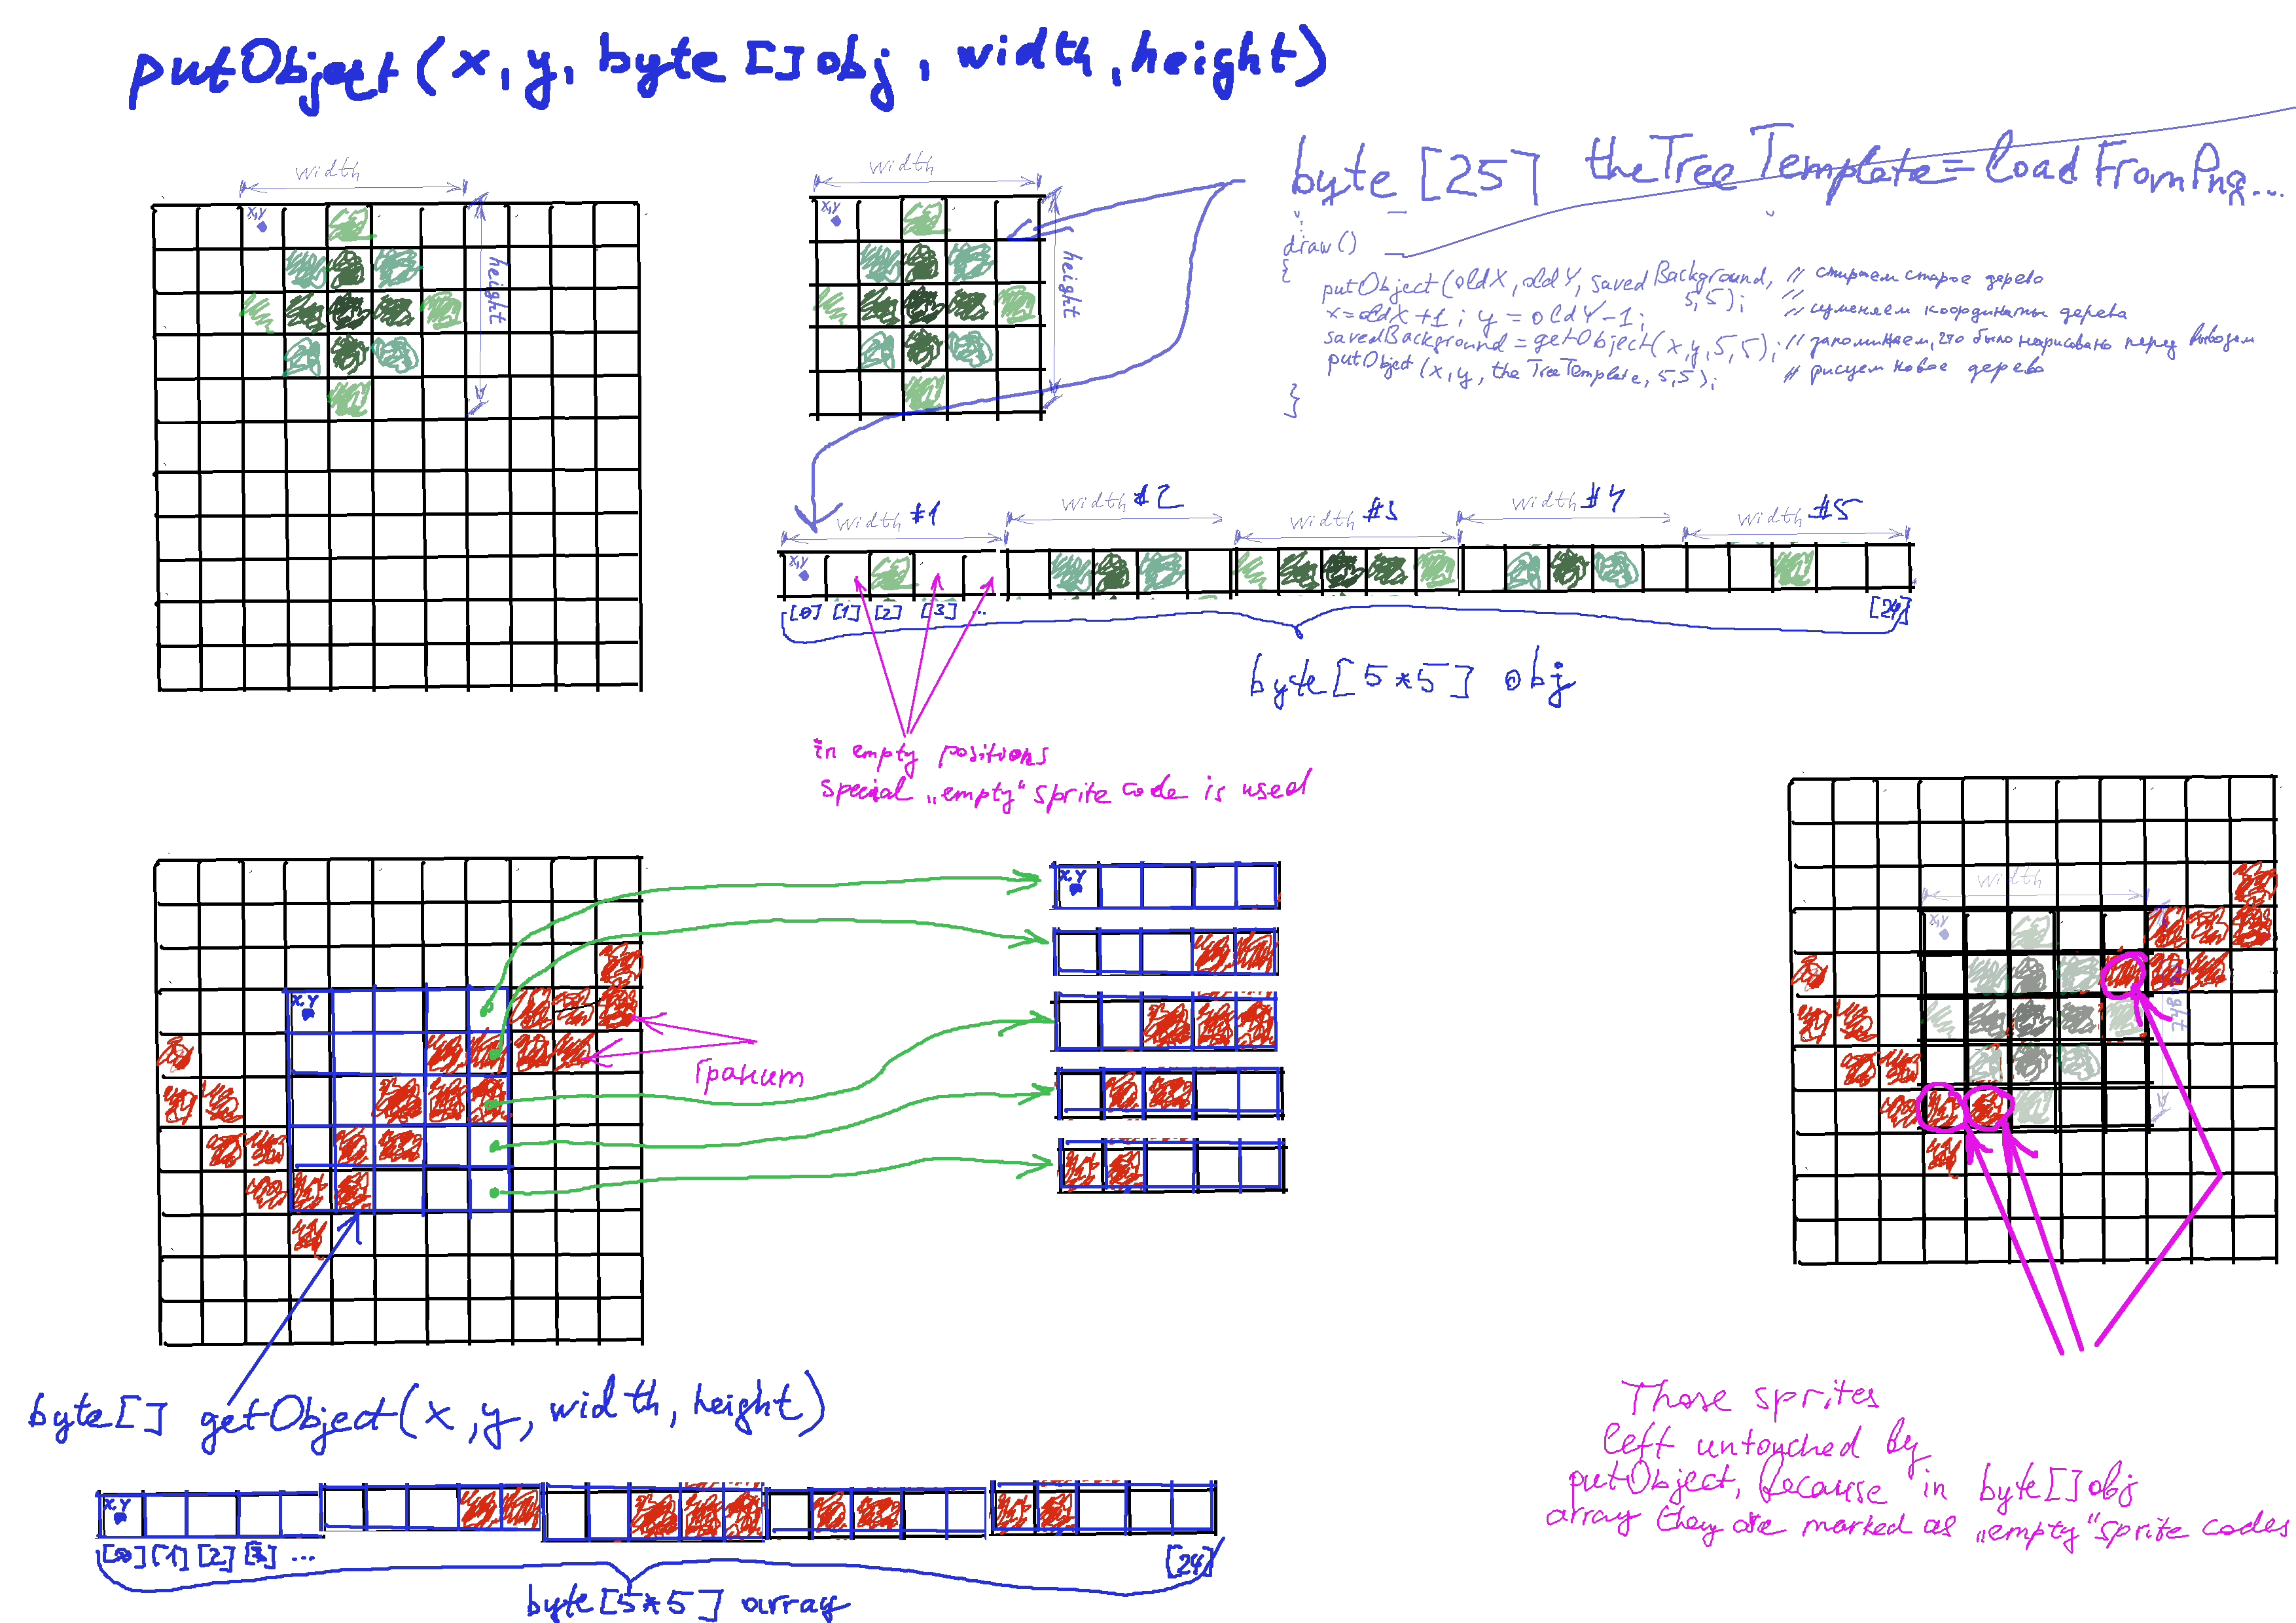 putObject(x, y, byte []obj, width, height)
width
x,y
height
width
x,y
height
byte [25] theTreeTemplate = LoadFromPng...
draw()
{
putObject(oldX, oldY, savedBackground, // стираем старое дерево
5,5); //
x=oldX+1; y=oldY-1; // изменяем координаты дерева
savedBackground=getObject(x,y,5,5); // запоминаем, что было нарисовано перед выводом
putObject(x,y, theTreeTemplate, 5,5); // рисуем новое дерево
}
width #1 width #2 width #3 width #4 width #5
x,y
[0] [1] [2] [3] ... [24]
byte[5*5] obj
in empty positions
special „empty“ sprite code is used
x,y
Гранит
x,y
width
x,y
byte[] getObject(x,y, width, height)
x,y
[0] [1] [2] [3] ... [24]
byte[5*5] array
Those sprites
left untouched by
putObject, because in byte[]obj
array they are marked as „empty“ sprite codes